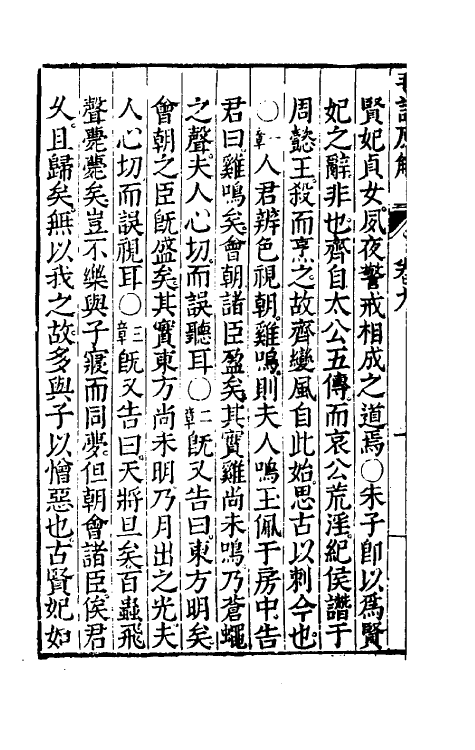 毛詩原解 卷九
賢妃貞女夙夜警戒相成之道焉〇朱子卽以爲賢
妃之辭非也齊自太公五傳而哀公荒淫紀侯譖于
周懿王殺而烹之故齊變風自此始思古以刺今也
〇一章人君辨色視朝雞鳴則夫人鳴王佩于房中告
君曰雞鳴矣會朝諸臣盈矣其實雞尚未鳴乃蒼蠅
之聲夫人心切而誤聽耳〇二章旣又告曰東方明矣
會朝之臣旣盛矣其實東方尚未明乃月出之光夫
人心切而誤視耳〇三章旣又告曰天將旦矣百蟲飛
聲薨薨矣豈不樂與子寢而同夢但朝會諸臣俟君
久且歸矣無以我之故多與子以憎惡也古賢妃如